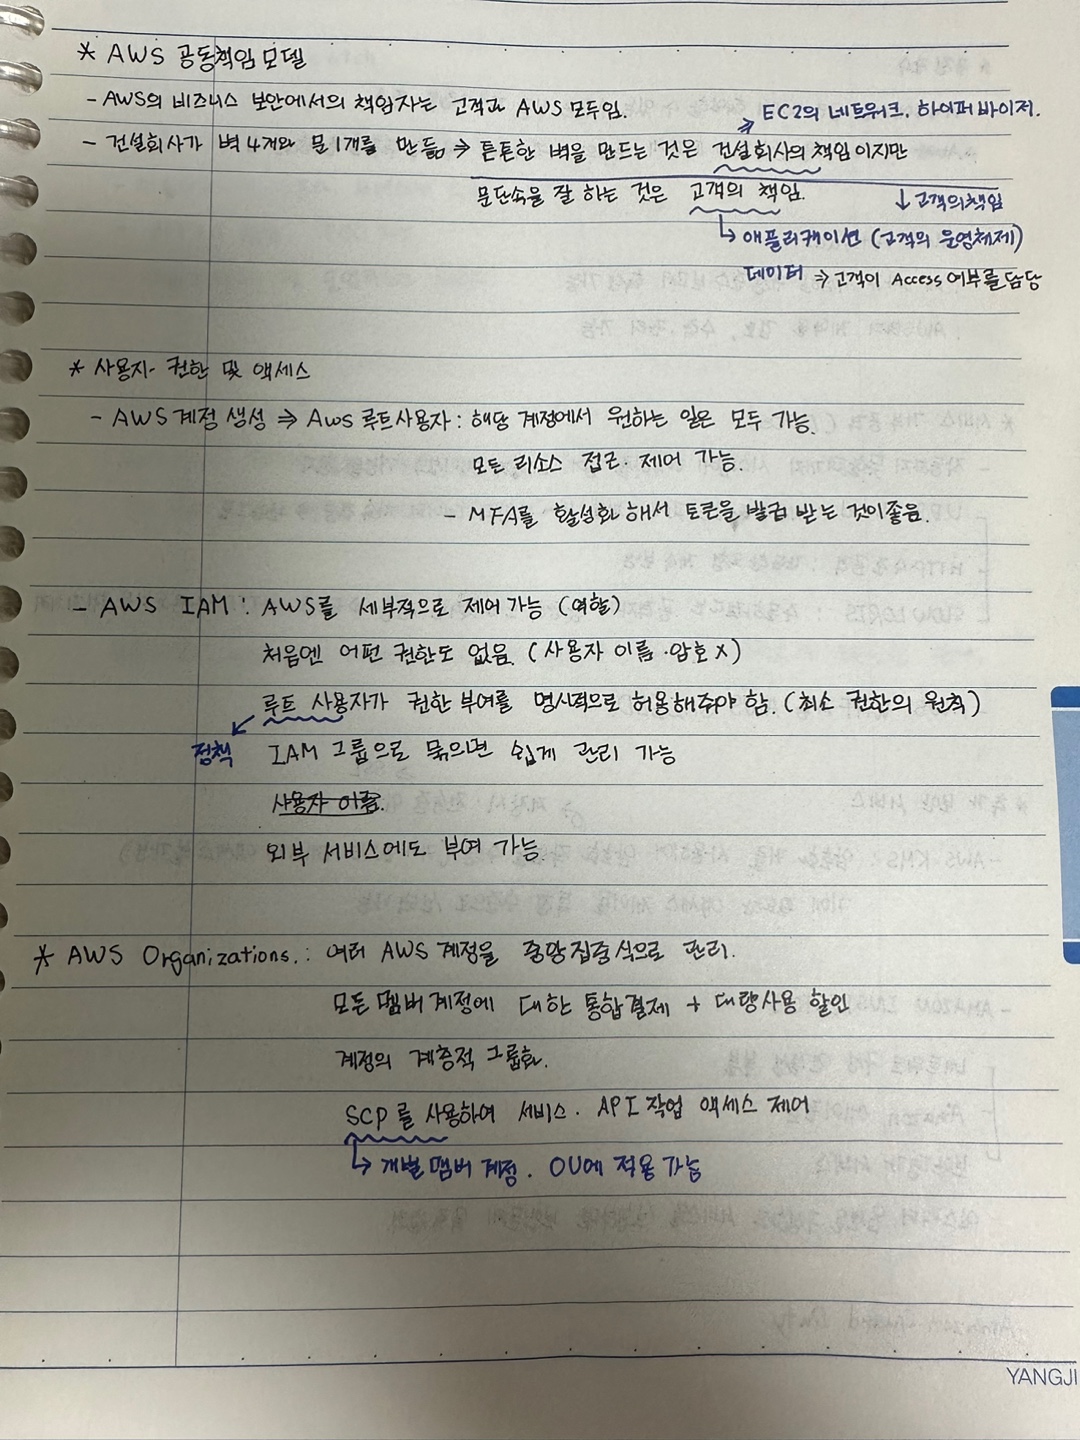 * AWS 공동책임모델
- AWS의 비즈니스 보안에서의 책임자는 고객과 AWS 모두임.
⇒ EC2의 네트워크, 하이퍼바이저.
- 건설회사가 벽 4개와 문 1개를 만듦 ⇒ 튼튼한 벽을 만드는 것은 건설회사의 책임이지만
문단속을 잘 하는 것은 고객의 책임.
↓ 고객의책임
↳ 애플리케이션 (고객의 운영체제)
데이터 ⇒ 고객이 Access 여부를 담당
* 사용자·권한 및 액세스
- AWS 계정 생성 ⇒ AWS 루트사용자 : 해당 계정에서 원하는 일은 모두 가능.
모든 리소스 접근·제어 가능.
- MFA를 활성화 해서 토큰을 발급 받는 것이 좋음.
- AWS IAM : AWS를 세부적으로 제어 가능 (역할)
처음엔 어떤 권한도 없음. (사용자 이름·암호 X)
루트 사용자가 권한 부여를 명시적으로 허용해주야 함. (최소 권한의 원칙)
정책
IAM 그룹으로 묶으면 쉽게 관리 가능
사용자 이름.
외부 서비스에도 부여 가능.
* AWS Organizations. : 여러 AWS 계정을 중앙집중식으로 관리.
모든 멤버 계정에 대한 통합결제 + 대량사용 할인
계정의 계층적 그룹화.
SCP를 사용하여 서비스·API 작업 액세스 제어
↳ 개별 멤버 계정. OU에 적용 가능
YANGJI